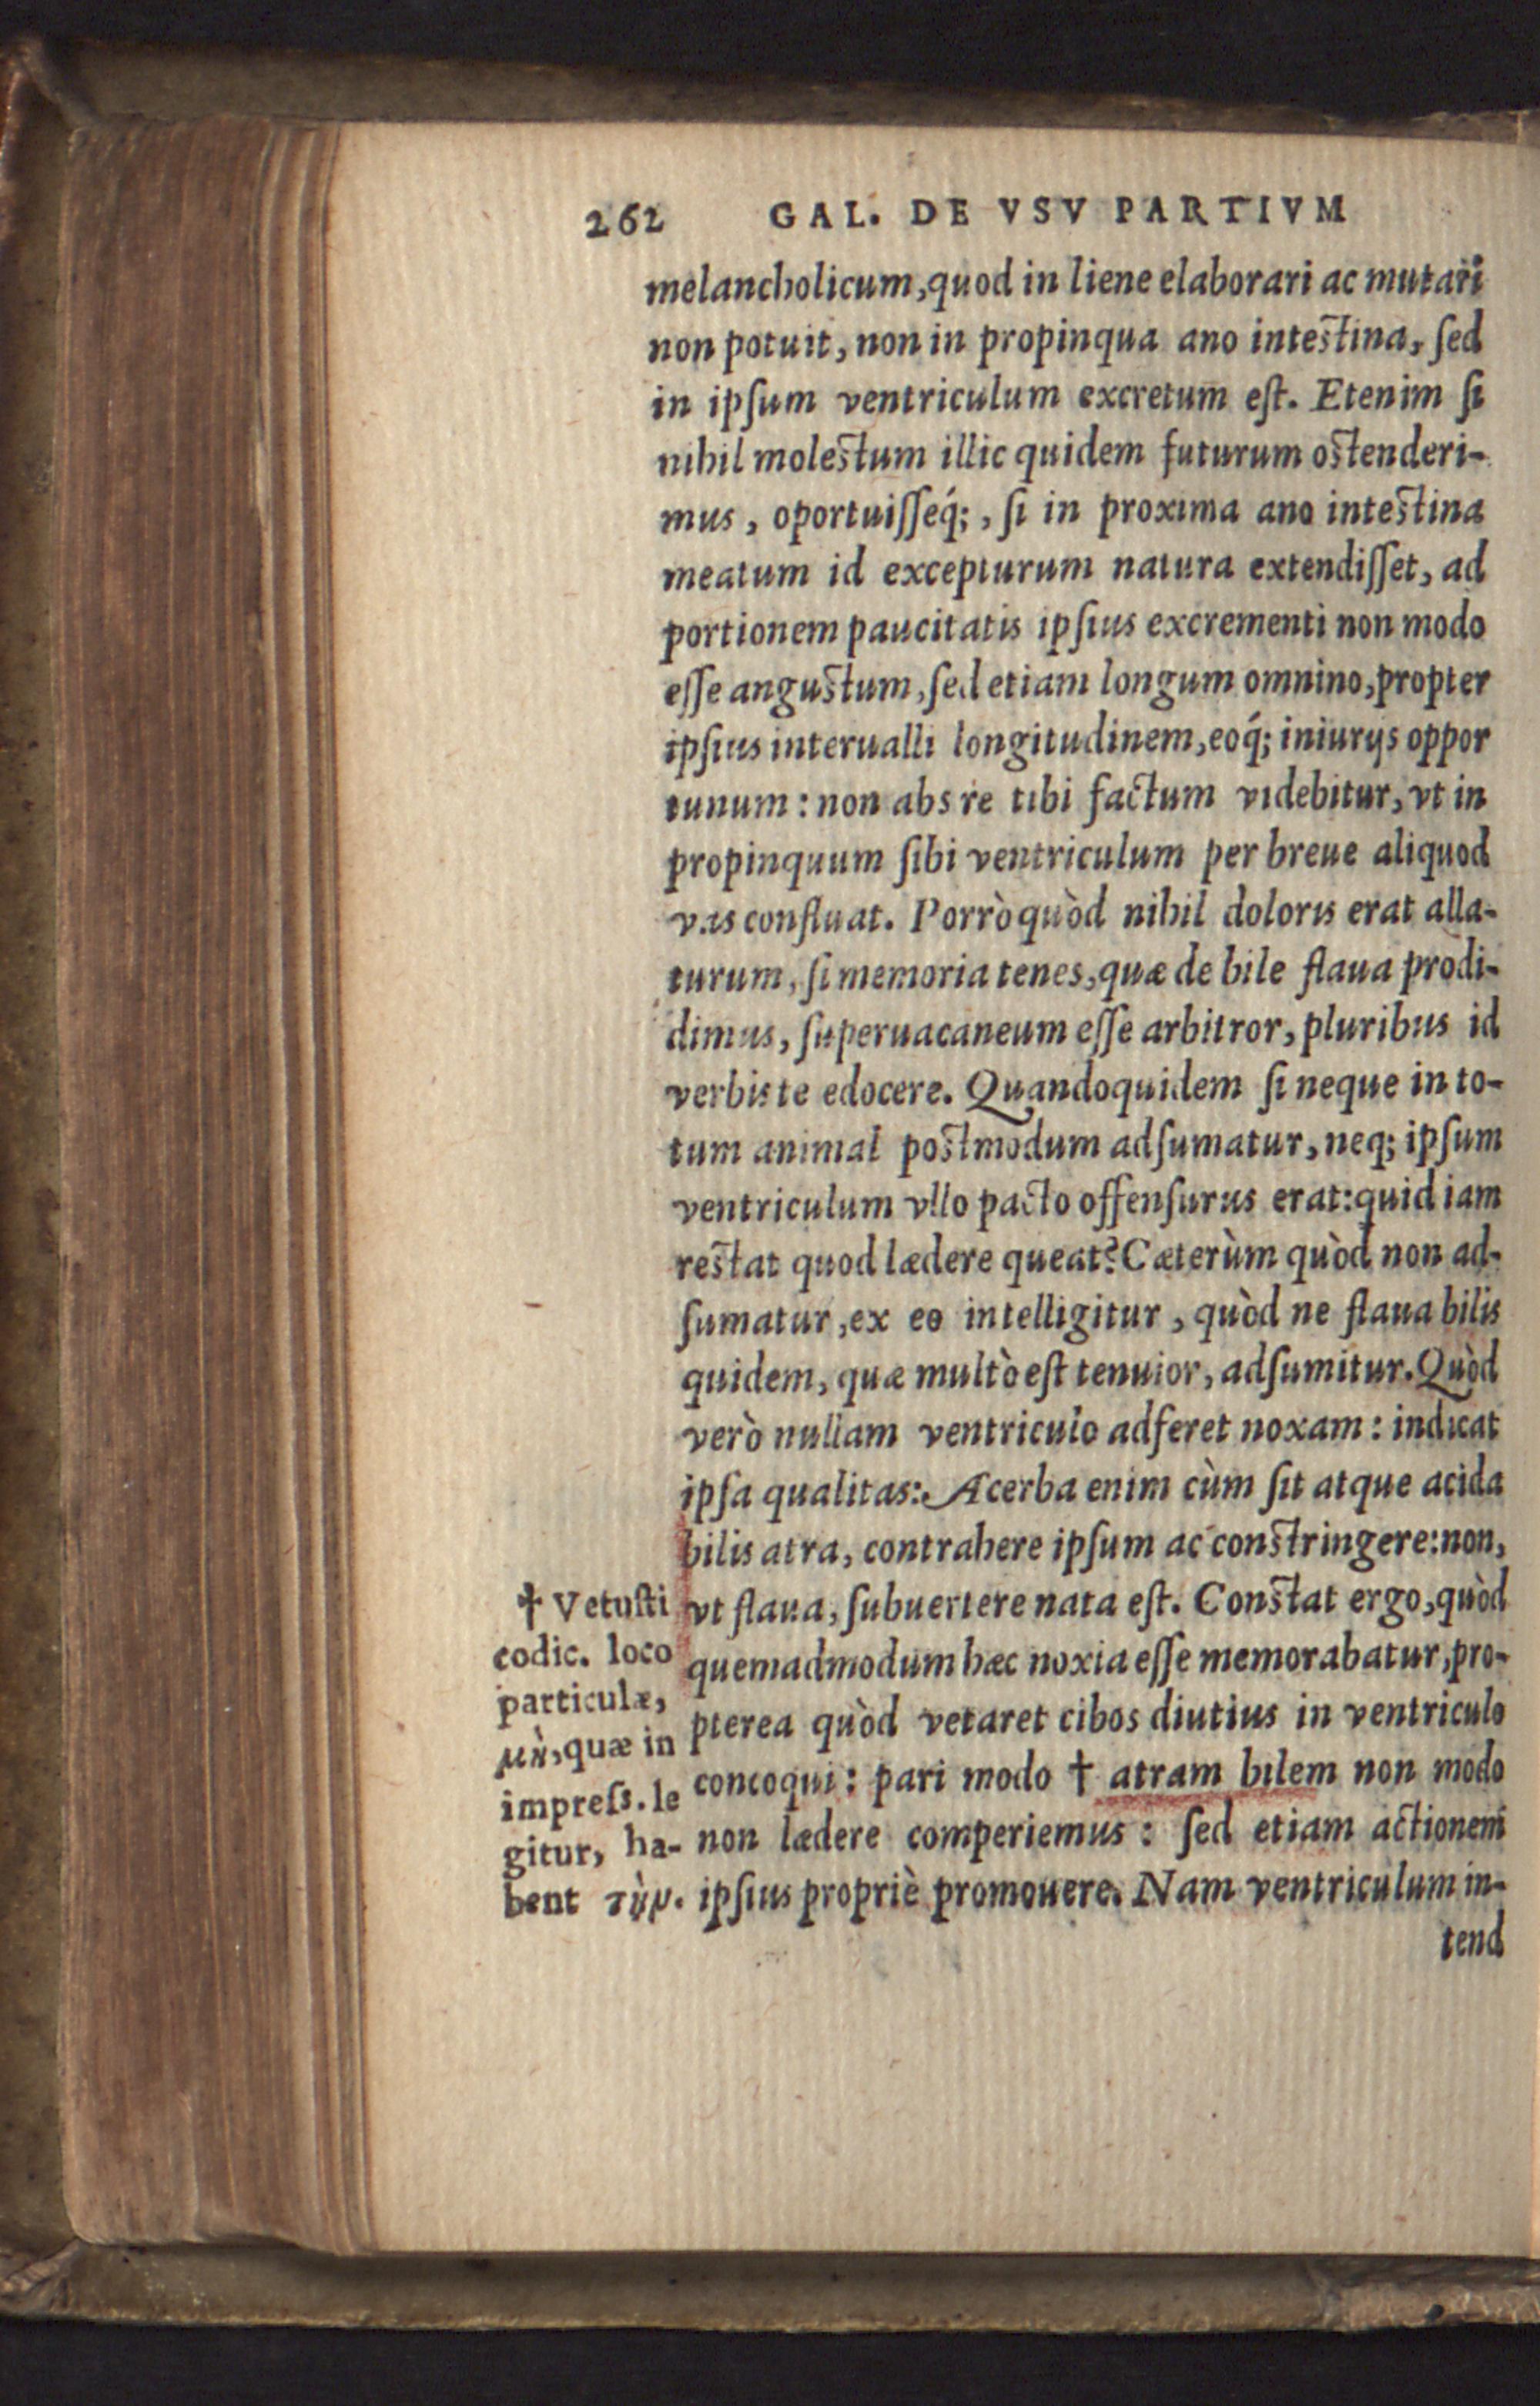 262 GAL. DE VSV PARTIVM
melancholicum, quod in liene elaborari ac mutari
non potuit, non in propinqua ano intestina, sed
in ipsum ventriculum excretum est. Etenim si
nihil molestum illic quidem futurum ostenderi-
mus, oportuisséq;, si in proxima ano intestina
meatum id excepturum natura extendisset, ad
portionem paucitatis ipsius excrementi non modo
esse angustum, sed etiam longum omnino, propter
ipsius interualli longitudinem, eoq́; iniurijs oppor
tunum: non abs re tibi factum videbitur, vt in
propinquum sibi ventriculum per breue aliquod
vas confluat. Porrò quòd nihil doloris erat alla-
turum, si memoria tenes, quæ de bile flaua prodi-
dimus, superuacaneum esse arbitror, pluribus id
verbis te edocere. Quandoquidem si neque in to-
tum animal postmodum adsumatur, neq; ipsum
ventriculum vllo pacto offensurus erat: quid iam
restat quod lædere queat? Cæterùm quòd non ad-
sumatur, ex eo intelligitur, quòd ne flaua bilis
quidem, quæ multò est tenuior, adsumitur. Quòd
verò nullam ventriculo adferet noxam: indicat
ipsa qualitas: Acerba enim cùm sit atque acida
bilis atra, contrahere ipsum ac constringere: non,
vt flaua, subuertere nata est. Constat ergo, quòd
quemadmodum hæc noxia esse memorabatur, pro-
pterea quòd vetaret cibos diutius in ventriculo
concoqui: pari modo † atram bilem non modo
non lædere comperiemus: sed etiam actionem
ipsius propriè promouere. Nam ventriculum in-
tend
† Vetusti
codic. loco
particulæ,
μὴ, quæ in
impress. le
gitur, ha-
bent τὴν.